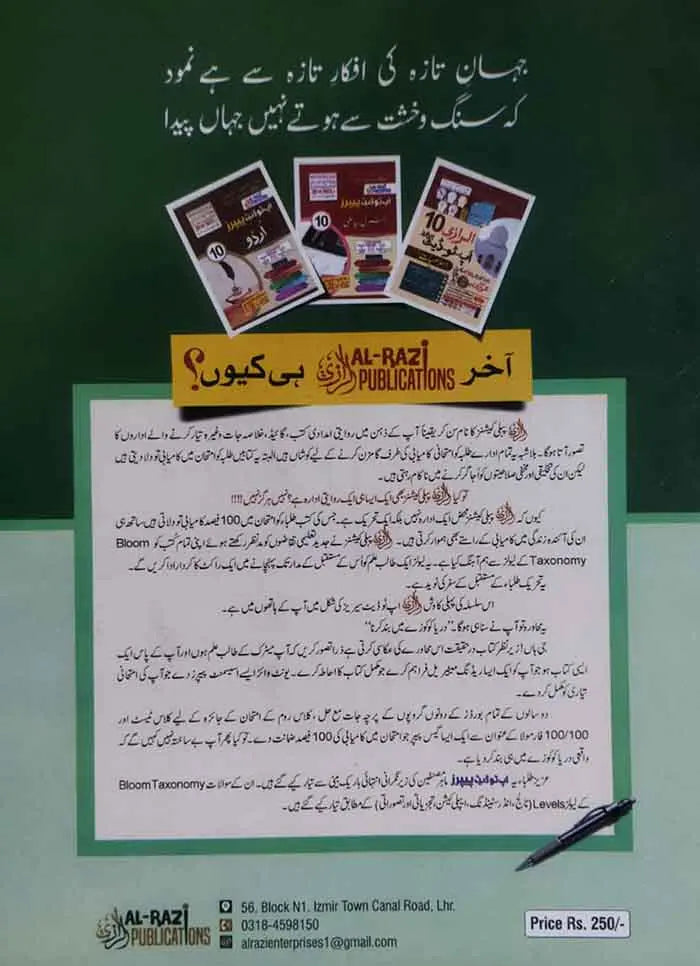 جہانِ تازہ کی افکارِ تازہ سے ہے نمود
کہ سنگ و خشت سے ہوتے نہیں جہاں پیدا
اپ ٹو ڈیٹ پیپرز
اردو
10
اپ ٹو ڈیٹ پیپرز
10
الرازی 10
اپ ٹو ڈیٹ
آخر رازی AL-RAZI PUBLICATIONS ہی کیوں؟
رازی پبلی کیشنز کا نام سن کر یقیناً آپ کے ذہن میں روایتی امدادی کتب، گائیڈ، خلاصہ جات وغیرہ تیار کرنے والے اداروں کا
تصور آتا ہوگا۔ بلاشبہ یہ تمام ادارے طلبہ کو امتحانی کامیابی کی طرف گامزن کرنے کے لیے کوشاں ہیں البتہ یہ کتابیں طلبہ کو امتحان میں کامیابی تو دلا دیتی ہیں
لیکن ان کی تخلیقی اور مخفی صلاحیتوں کو اُجاگر کرنے میں ناکام رہتی ہیں۔
تو کیا رازی پبلی کیشنز بھی ایک ایسا ہی ایک روایتی ادارہ ہے؟ نہیں ہرگز نہیں!!!!
کیوں کہ رازی پبلی کیشنز محض ایک ادارہ نہیں بلکہ ایک تحریک ہے۔ جس کی کتب طلباء کو امتحان میں 100 فیصد کامیابی تو دلاتی ہیں ساتھ ہی
ان کی آئندہ زندگی میں کامیابی کے راستے بھی ہموار کرتی ہیں۔ رازی پبلی کیشنز نے جدید تعلیمی تقاضوں کو مدنظر رکھتے ہوئے اپنی تمام کُتب کو Bloom
Taxonomy کے لیولز سے ہم آہنگ کیا ہے۔ یہ لیولز ایک طالب علم کو اُس کے مستقبل کے مدار تک پہنچانے میں ایک راکٹ کا کردار ادا کریں گے۔
یہ تحریک طلباء کے مستقبل کے سفر کی نوید ہے۔
اس سلسلہ کی پہلی کاوش رازی اپ ٹو ڈیٹ سیریز کی شکل میں آپ کے ہاتھوں میں ہے۔
یہ محاورہ تو آپ نے سنا ہی ہوگا۔ "دریا کو کوزے میں بند کرنا"
جی ہاں! زیر نظر کتاب درحقیقت اس محاورے کی عکاسی کرتی ہے ذرا تصور کریں کہ آپ میٹرک کے طالب علم ہوں اور آپ کے پاس ایک
ایسی کتاب ہو جو آپ کو ایک ایسا ریڈنگ میٹیریل فراہم کرے جو مکمل کتاب کا احاطہ کرے۔ یونٹ وائز ایسے اسیسمنٹ پیپرز دے جو آپ کی امتحانی
تیاری کو مکمل کر دے۔
دو سالوں کے تمام بورڈز کے دونوں گروپوں کے پرچہ جات مع حل، کلاس روم کے امتحان کے جائزہ کے لیے کلاس ٹیسٹ اور
100/100 فارمولا کے عنوان سے ایک ایسا گیس پیپر جو امتحان میں کامیابی کی 100 فیصد ضمانت دے۔ تو کیا پھر آپ بے ساختہ نہیں کہیں گے کہ
واقعی دریا کو کوزے میں ہی بند کر دیا ہے۔
عزیز طلباء! یہ اپ ٹو ڈیٹ پیپرز ماہر مصنفین کی زیر نگرانی انتہائی باریک بینی سے تیار کیے گئے ہیں۔ ان کے سوالات Bloom Taxonomy
کے لیولز Levels (نالج، انڈرسٹینڈنگ، ایپلی کیشن، تجزیاتی اور تصوراتی) کے مطابق تیار کیے گئے ہیں۔
رازی AL-RAZI PUBLICATIONS
56, Block N1. Izmir Town Canal Road, Lhr.
0318-4598150
alrazienterprises1@gmail.com
Price Rs. 250/-